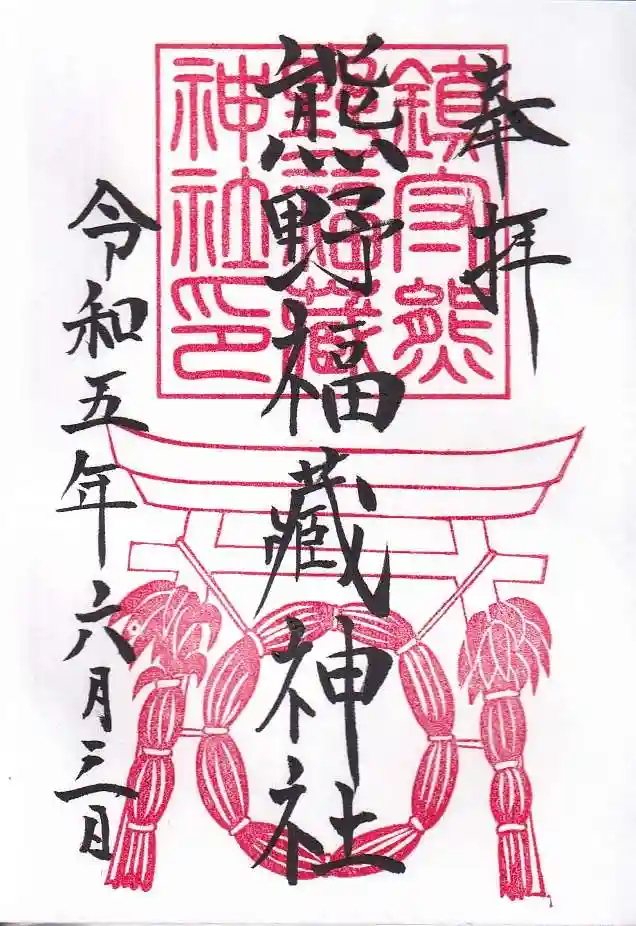 奉拝
鎮守熊
野福藏
神社印
熊野福藏神社
令和五年六月三日